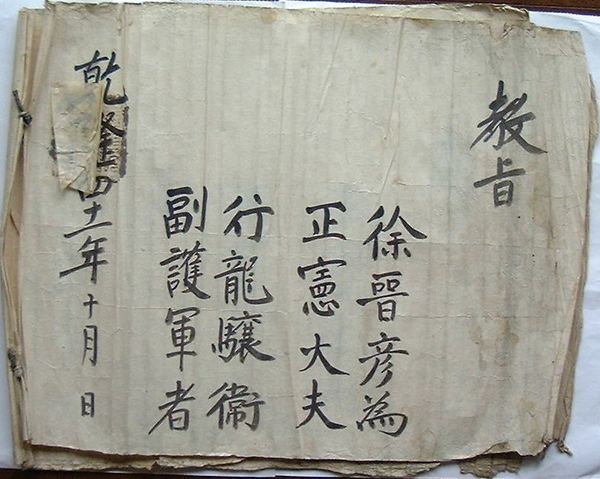 教旨
徐晉彦為
正憲大夫
行龍驤衛
副護軍者
乾隆四十一年十月 日